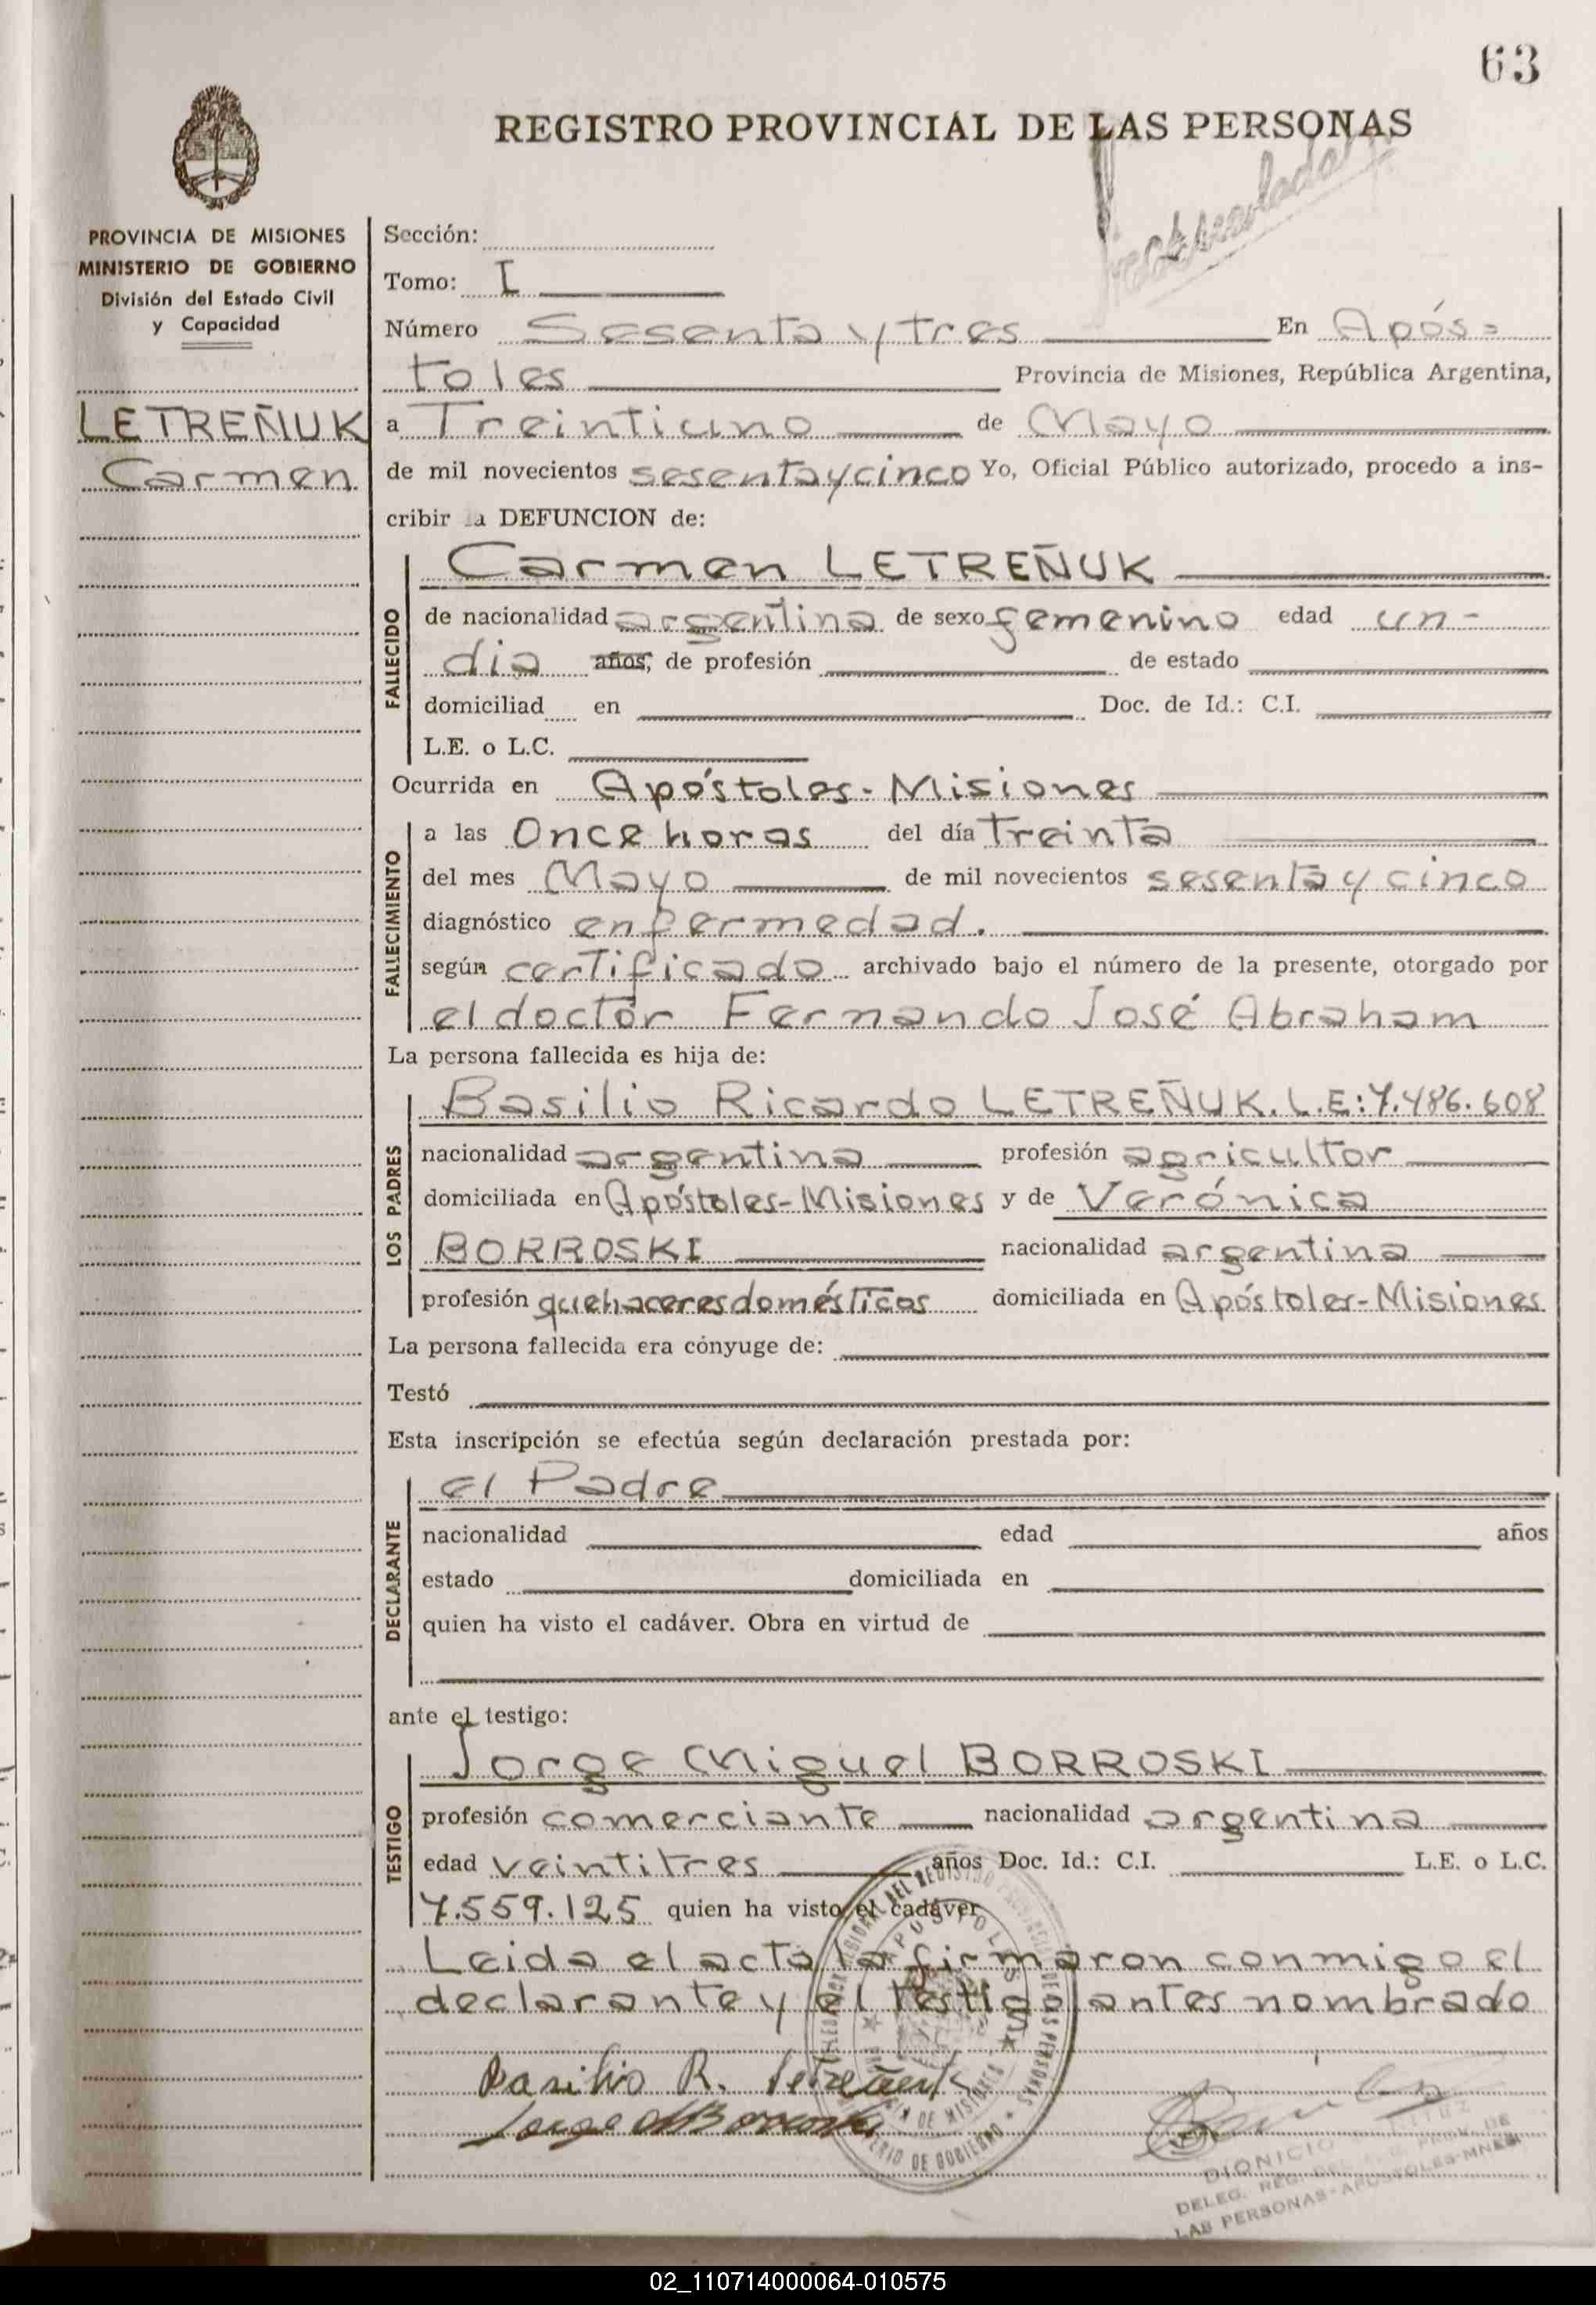 63
REGISTRO PROVINCIAL DE LAS PERSONAS
PROVINCIA DE MISIONES
MINISTERIO DE GOBIERNO
División del Estado Civil
y Capacidad
LETREÑUK
Carmen
Sección:
Tomo: I
Número Sesenta y tres En Após=
toles Provincia de Misiones, República Argentina,
a Treintiuno de Mayo
de mil novecientos sesentaycinco Yo, Oficial Público autorizado, procedo a ins-
cribir la DEFUNCION de:
FALLECIDO
Carmen LETREÑUK
de nacionalidad argentina de sexo femenino edad un-
dia años, de profesión de estado
domiciliad en Doc. de Id.: C.I.
L.E. o L.C.
Ocurrida en Apóstoles-Misiones
FALLECIMIENTO
a las Once horas del día treinta
del mes Mayo de mil novecientos sesenta y cinco
diagnóstico enfermedad.
según certificado archivado bajo el número de la presente, otorgado por
el doctor Fernando José Abraham
La persona fallecida es hija de:
LOS PADRES
Basilio Ricardo LETREÑUK. L.E:7.486.608
nacionalidad argentina profesión agricultor
domiciliada en Apóstoles-Misiones y de Verónica
BORROSKI nacionalidad argentina
profesión quehaceres domésticos domiciliada en Apóstoles-Misiones
La persona fallecida era cónyuge de:
Testó
Esta inscripción se efectúa según declaración prestada por:
DECLARANTE
el Padre
nacionalidad edad años
estado domiciliada en
quien ha visto el cadáver. Obra en virtud de
ante el testigo:
TESTIGO
Jorge Miguel BORROSKI
profesión comerciante nacionalidad argentina
edad veintitres años Doc. Id.: C.I. L.E. o L.C.
7.559.125 quien ha visto el cadáver
Leida el acta la firmaron conmigo el
declarante y el testigo antes nombrado
Basilio R.
Jorge
DIONICIO
DELEG. REG. DEL PROV. DE
LAS PERSONAS-APOSTOLES-MNES
02_110714000064-010575